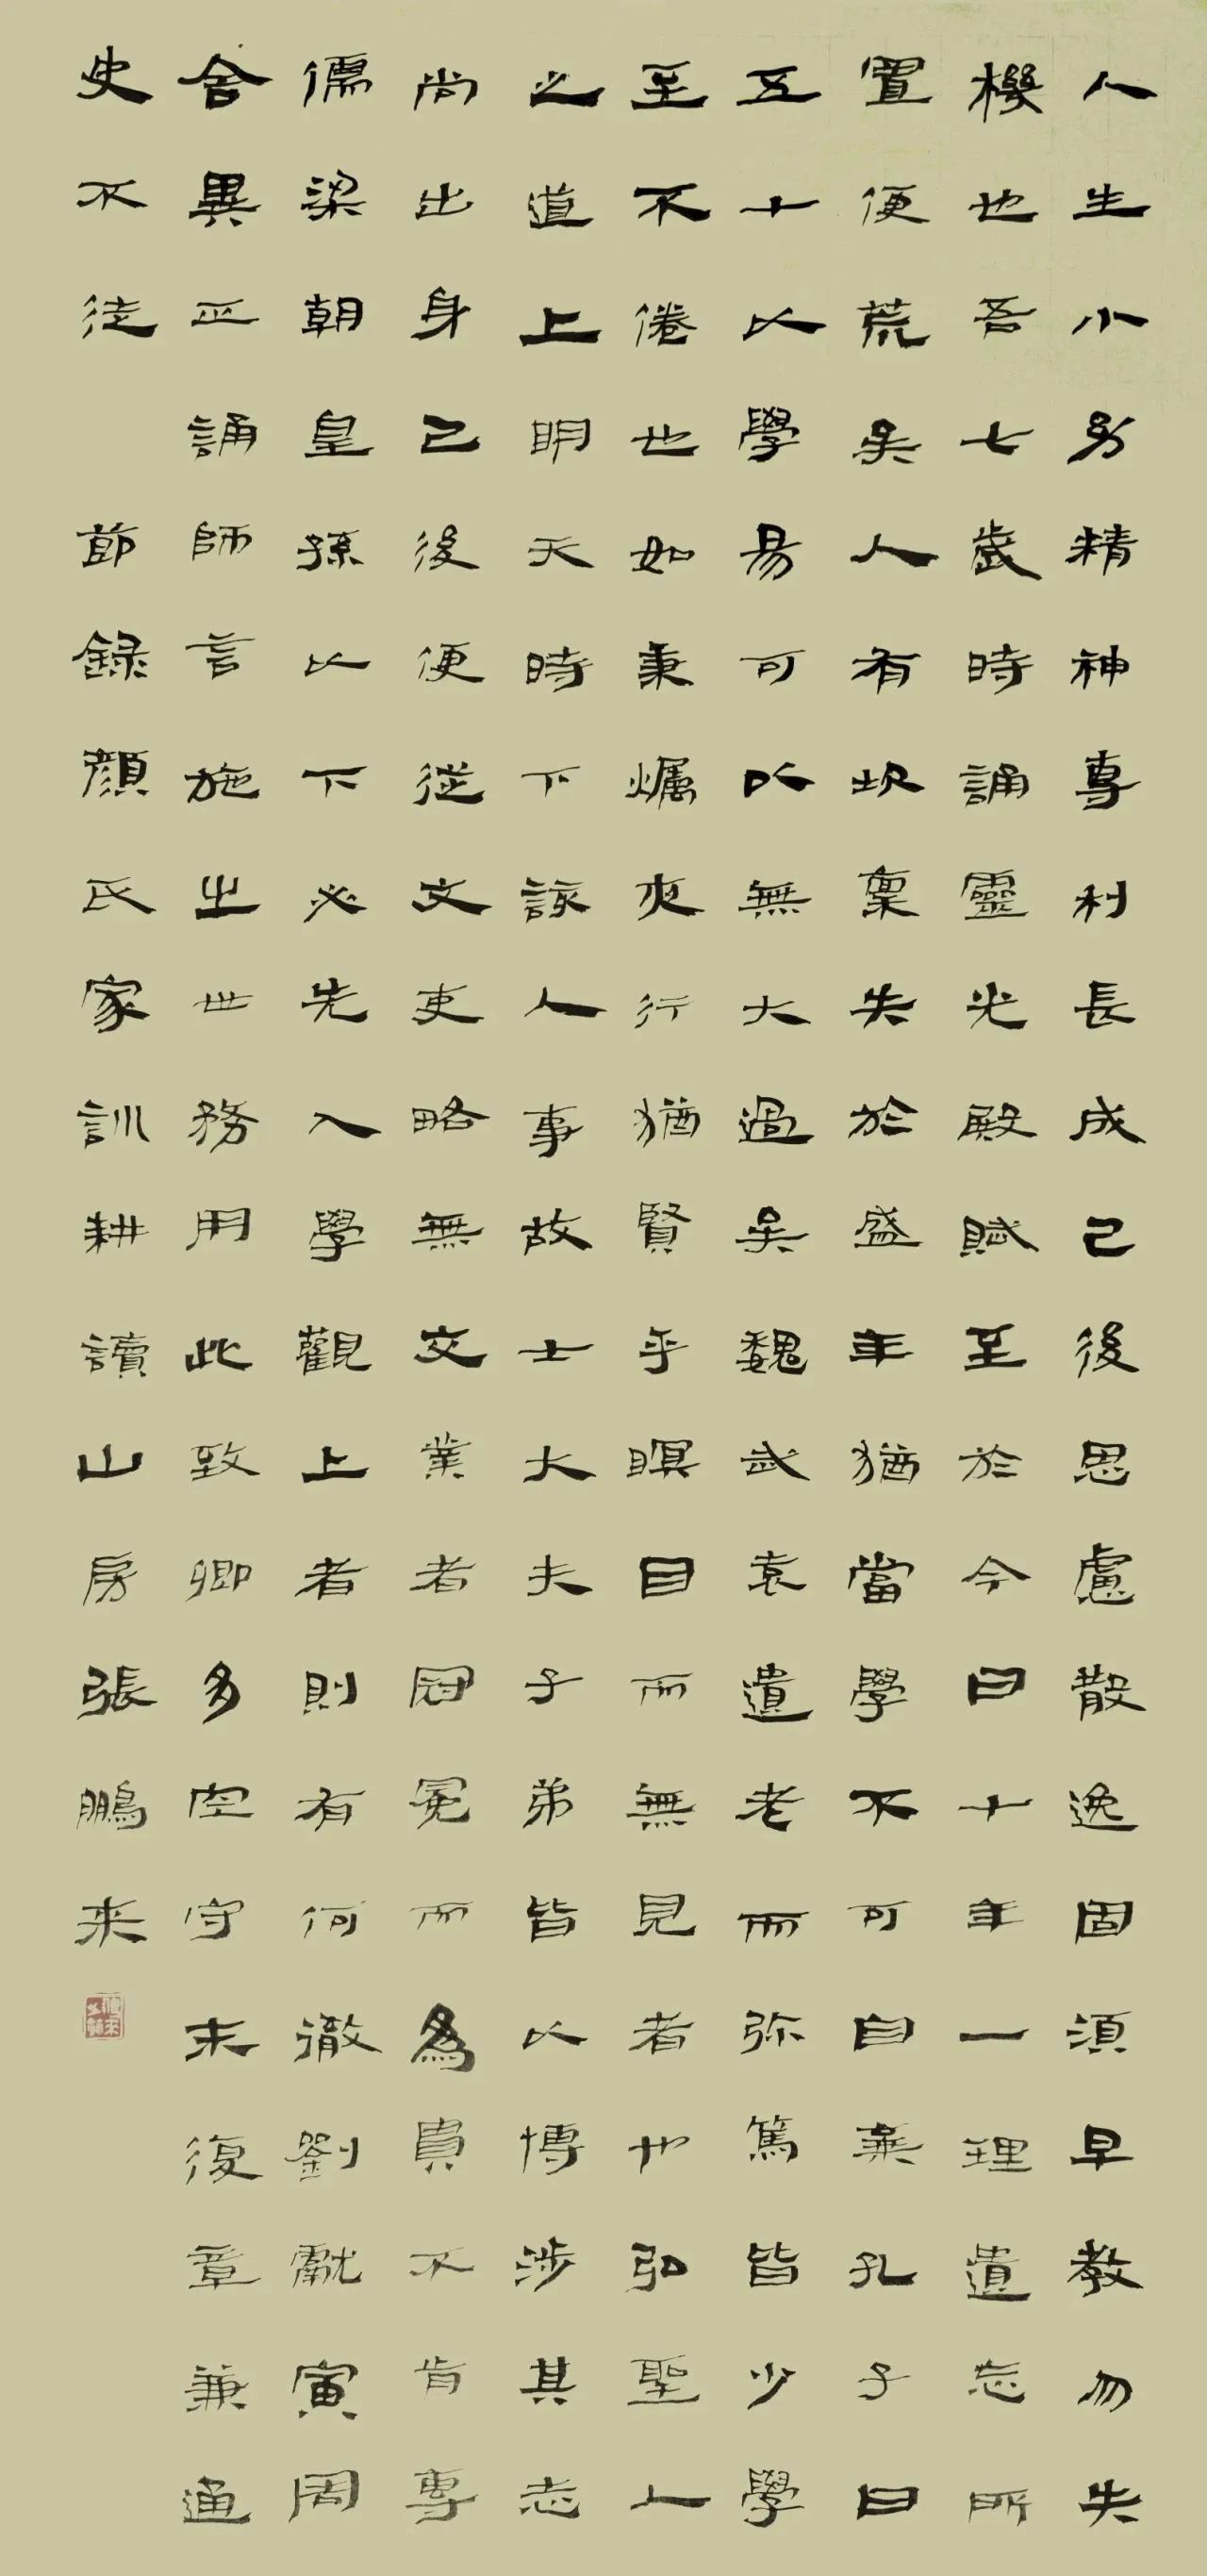 人生小幼精神專利長成已後思慮散逸固須早教勿失
機也吾七歲時誦靈光殿賦至於今日十年一理遺忘所
置便荒矣人有坎稟失於盛年猶當學不可自棄孔子曰
五十以學易可以無大過矣魏武袁遺老而弥篤皆少學
至不倦也如秉爥夜行猶賢乎瞑目而無見者也弘聖人
之道上明天時下該人事故士大夫子弟皆以博涉其志
尚出身已後便從文吏略無文業者冠冕而為貴不肯專
儒梁朝皇孫以下必先入學觀上者則有何徹劉獻寅周
舍異正誦師言施之世務用此致卿多空守末復章兼通
史不徒 節録顏氏家訓耕讀山房張鵬来